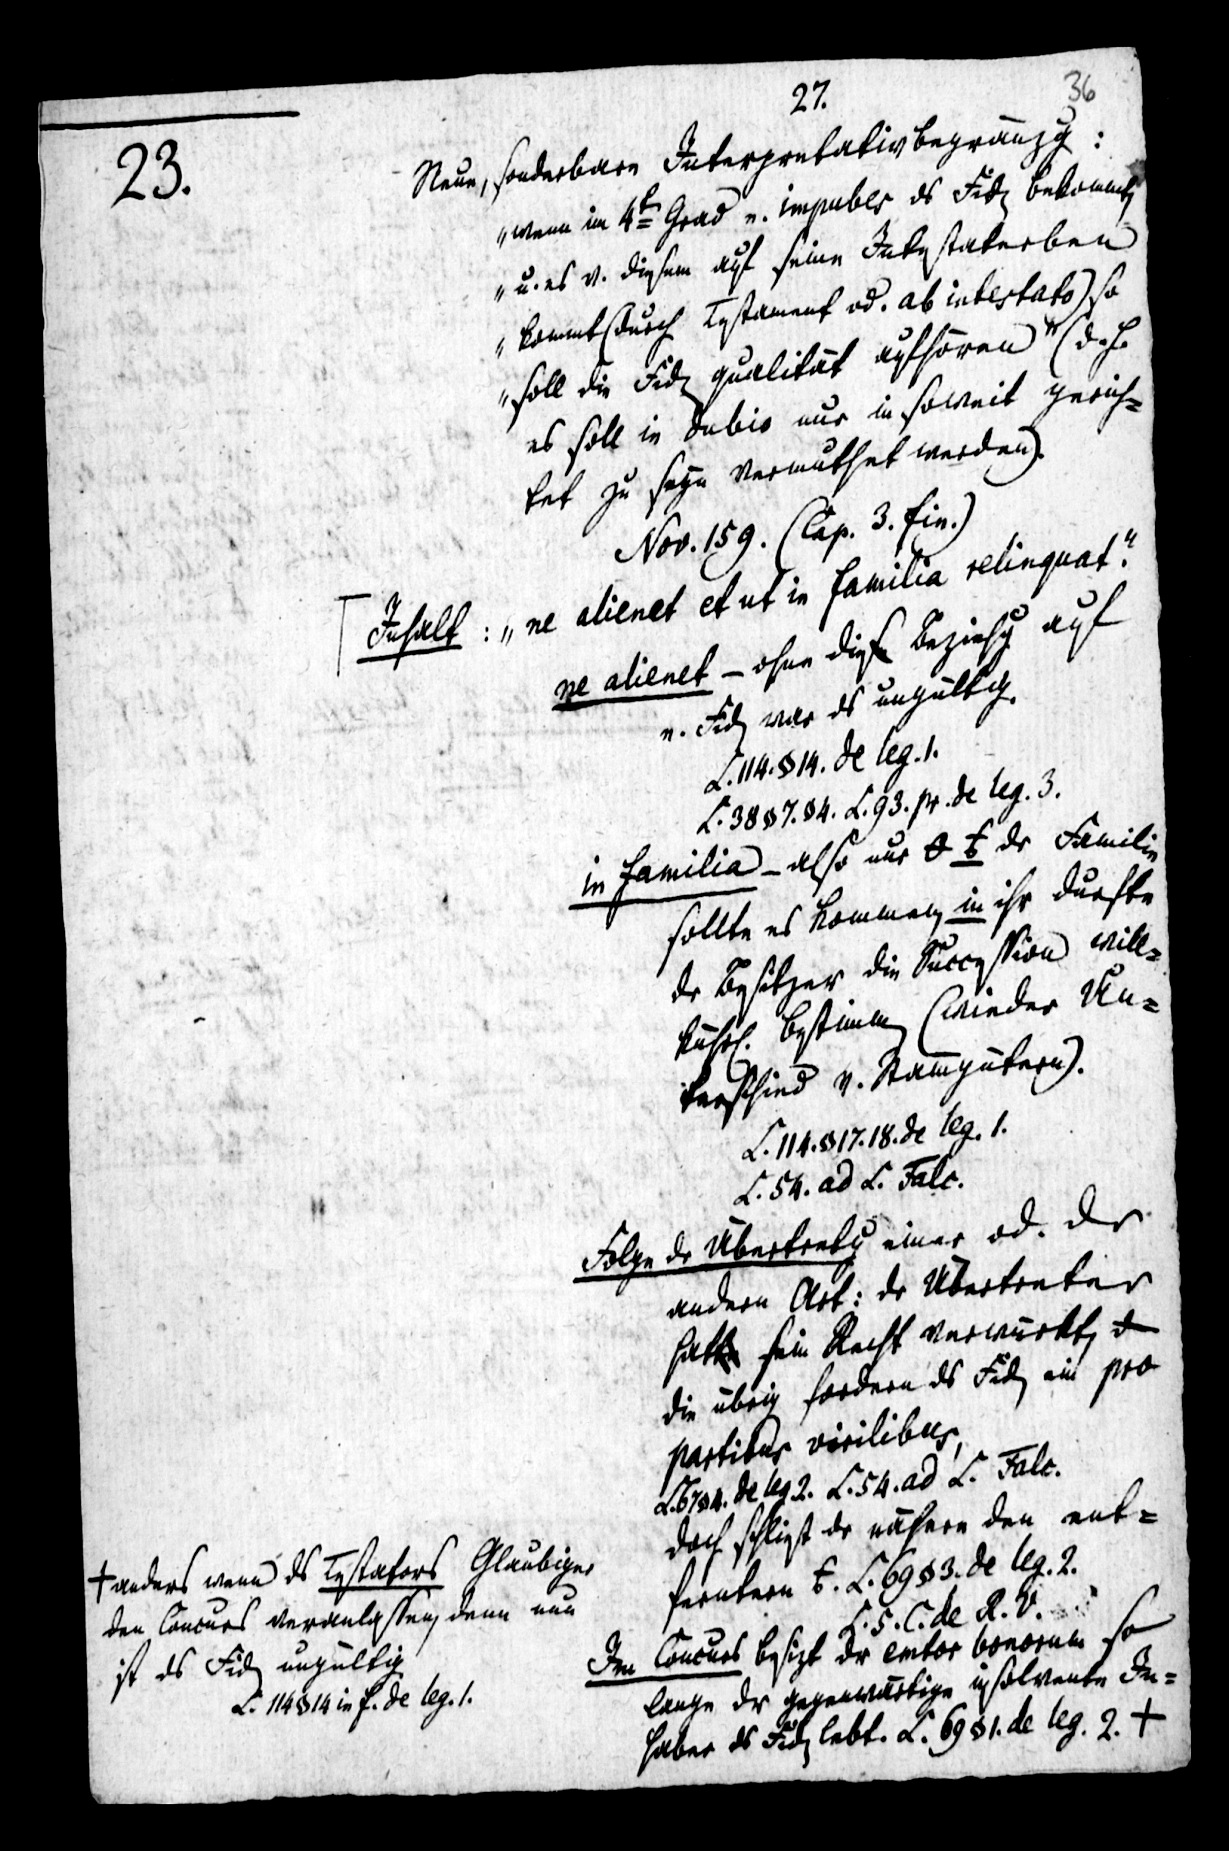 27.
36
23.
Neue, sonderbare Interpretativbegränzg:
„wenn im 4t Grad e. impubes ds Fid. bekommt,
„u. es v. diesem auf seine Intestaterben
„kommt (durch Testament od. ab intestato) so
„soll die Fid. qualität aufhören" (d. h.
es soll in dubio nur in soweit gerich=
tet zu seyn vermuthet werden).
Nov. 159. (Cap. 3. fin.)
Inhalt: „ne alienet et ut in familia relinquat".
ne alienet – ohne diese Beziehg auf
e. Fid. war ds ungültig.
L. 114. § 14. de leg. 1.
L. 38 § 7. § 4. L. 93. pr. de leg. 3.
in familia – also nur der Familie
sollte es kommen, in ihr durfte
dr Besitzer die Succession will=
kührl. bestimmen (wieder Un=
terschied v. Stammgütern).
L. 114. § 17. 18. de leg. 1.
L. 54. ad L. Falc.
Folge dr Übertretg einer od. der
andern Art: dr Übertreter
hatte sein Recht verwürkt,
die übrigen fordern ds Fid. ein pro
partibus virilibus,
L. 67 § 4. de leg 2. L. 54. ad L. Falc.
doch schließt dr nähere den ent=
ferntern L. 69 § 3. de leg. 2.
L. 5. C. de R. V.
Im Concurs besizt dr emtor bonorum so
lange dr gegenwärtige insolvente In=
haber ds Fid. lebt. L. 69 § 1. de leg. 2. +
+ anders wenn ds Testators Glaubiger
den Concurs veranlassen, denn nun
ist ds Fid. ungültig
L. 114 § 14 in f. de leg. 1.